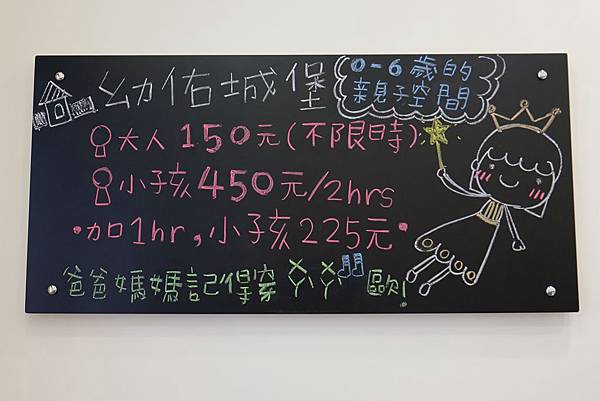 幼佑城堡
0-6歲的
親子空間
大人150元(不限時)
小孩450元/2hrs
•加1hr,小孩225元•
爸爸媽媽記得穿ㄚㄚ歐!